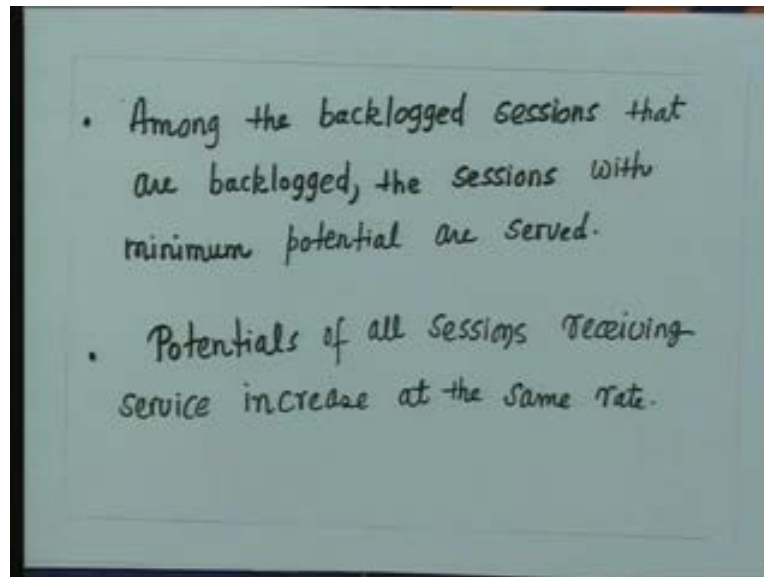 • Among the backlogged sessions that
are backlogged, the sessions with
minimum potential are served.
• Potentials of all sessions receiving
service increase at the same rate.